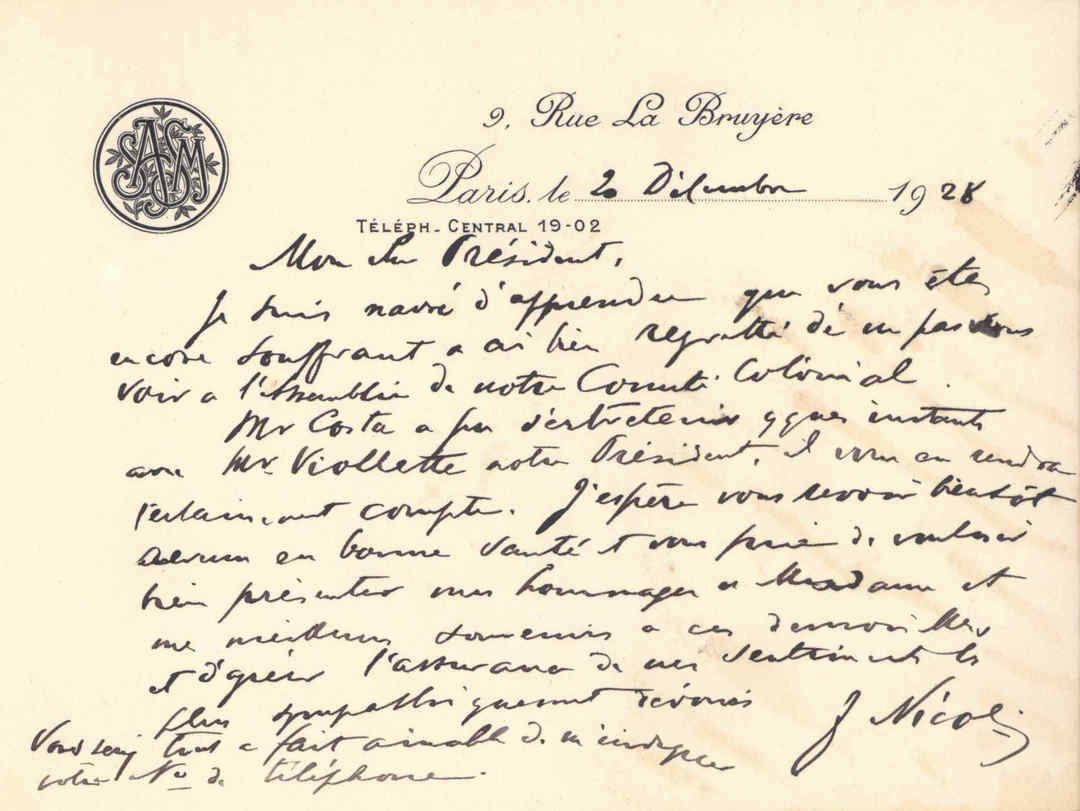 ASM
9, Rue La Bruyère
Paris, le 20 Décembre 1928
TÉLÉPH. CENTRAL 19-02
Mon cher Président,
Je suis navré d'apprendre que vous êtes
encore souffrant et ai bien regretté de ne pas vous
voir a l'Assemblée de notre Comité Colonial.
Mr Costa a pu s'entretenir qques instants
avec Mr. Viollette notre Président, il vous en rendra
certainement compte. J'espère vous revoir bientôt
en bonne santé et vous prie de vouloir
bien présenter mes hommages a Madame et
mes meilleurs souvenirs a ces demoiselles
et d'agréer l'assurance de mes sentiments les
plus sympathiquement dévoués
J Nicol
Vous seriez tout a fait aimable de m'indiquer
votre No de téléphone.